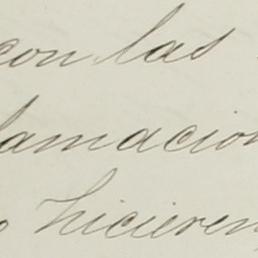 con las
lamacion
o hicieren